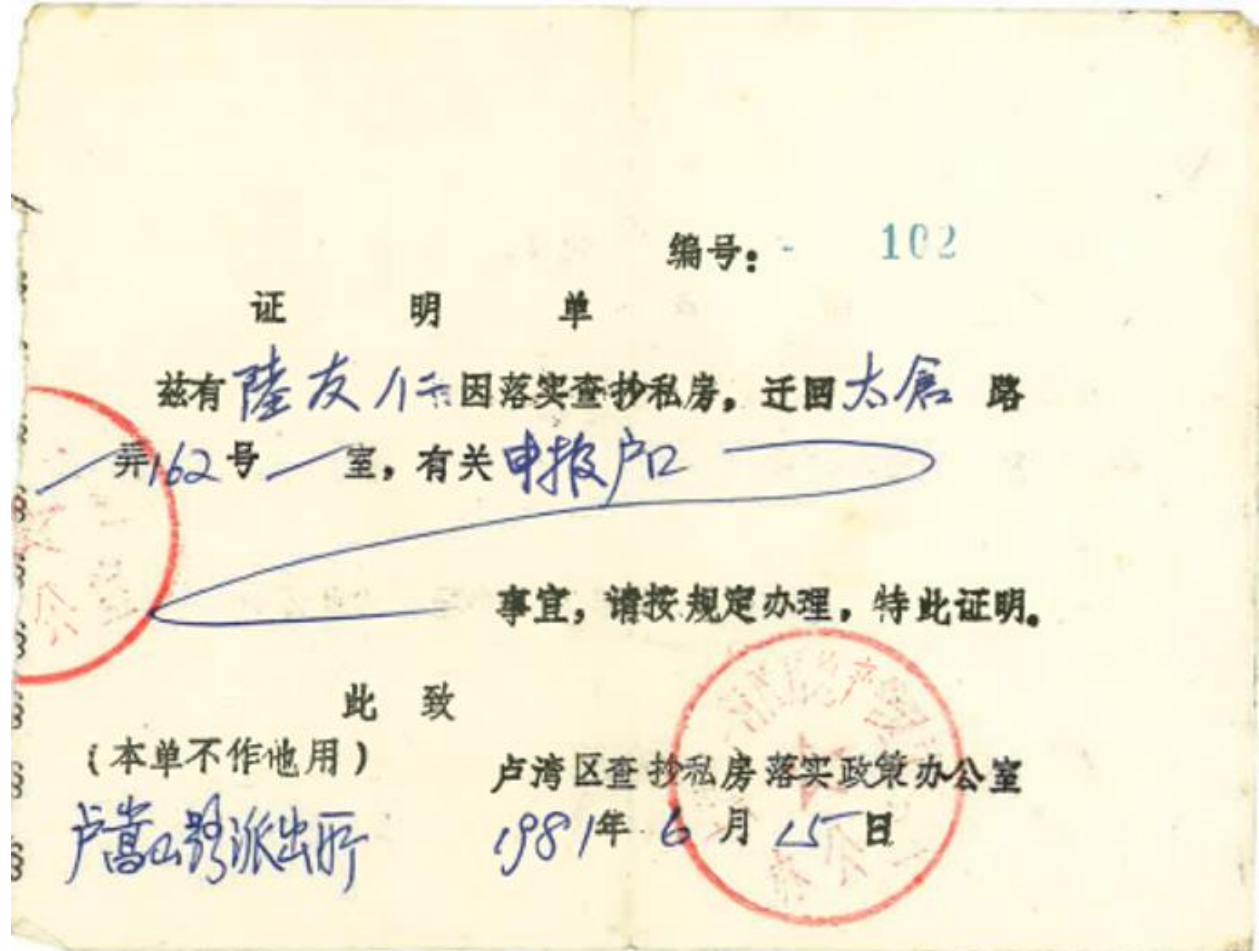 编号：- 102
证明单
兹有陸友仁因落实查抄私房，迁回太倉路
弄162号一室，有关申报户口
事宜，请按规定办理，特此证明。
此致
（本单不作他用）
卢湾区查抄私房落实政策办公室
嵩山路派出所
1981年6月25日